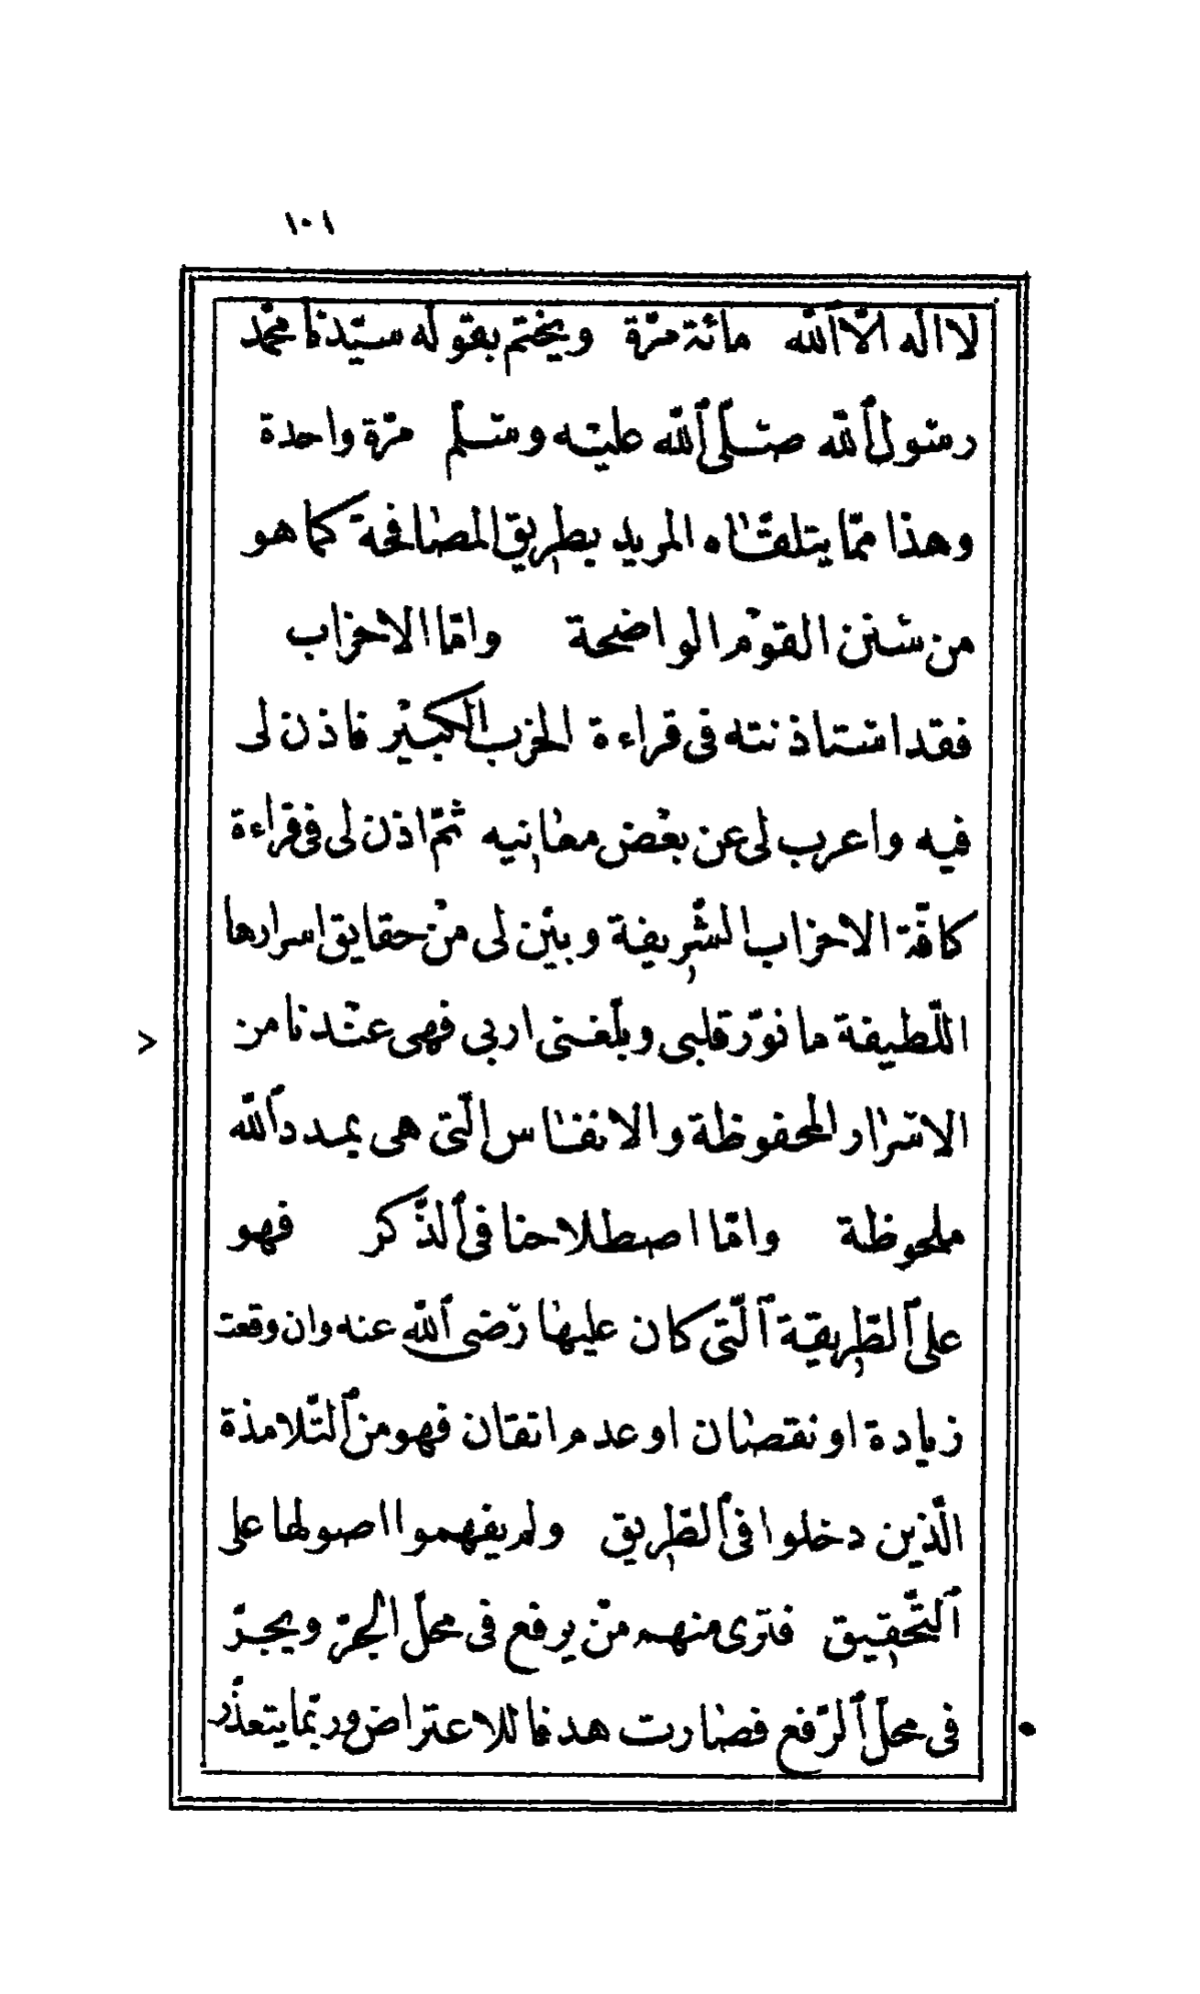 ١٠١
لا اله الّا الله مائة مرّة ويختم بقوله سيّدنا محمّد
رسول ٱللّه صلّى ٱللّه عليه وسلّم مرّة واحدة
وهذا ممّا يتلقّاه المريد بطريق المصافحة كما هو
من سنن القوم الواضحة وامّا الاحزاب
فقد استاذنته فى قراءة الحزب الكبير فاذن لى
فيه واعرب لى عن بعض معانيه ثمّ اذن لى فى قراءة
كافّة الاحزاب الشّريفة وبيّن لى من حقايق اسرارها
اللّطيفة ما نوّر قلبى وبلّغنى اربى فهى عندنا من
الاسرار المحفوظة والانفاس الّتى هى بمدد ٱللّه
ملحوظة وامّا اصطلاحنا فى ٱلذّكر فهو
على ٱلطّريقة ٱلّتى كان عليها رضى ٱللّه عنه وان وقعت
زيادة او نقصان او عدم اتقان فهو من ٱلتّلامذة
الّذين دخلوا فى ٱلطّريق ولم يفهموا اصولها على
ٱلتّحقيق فترى منهم من يرفع فى محلّ الجرّ ويجرّ
فى محلّ ٱلرّفع فصارت هدفا للاعتراض وربّما يتعذّر